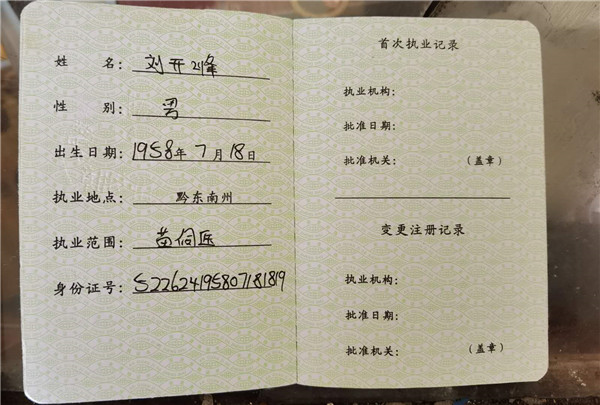 姓 名: 刘开峰
性 别: 男
出生日期: 1958年 7月18日
执业地点: 黔东南州
执业范围: 苗侗医
身份证号: 522624195807181819
首次执业记录
执业机构:
批准日期:
批准机关: (盖章)
变更注册记录
执业机构:
批准日期:
批准机关: (盖章)